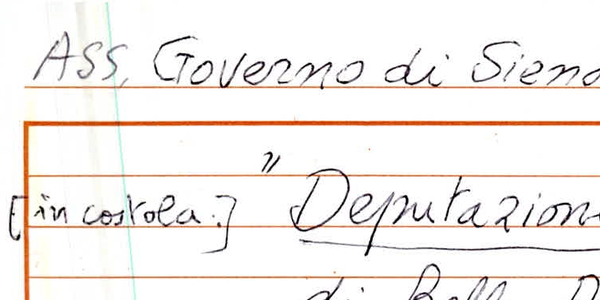 ASS, Governo di Siena
[in costola:] " Deputazion
di